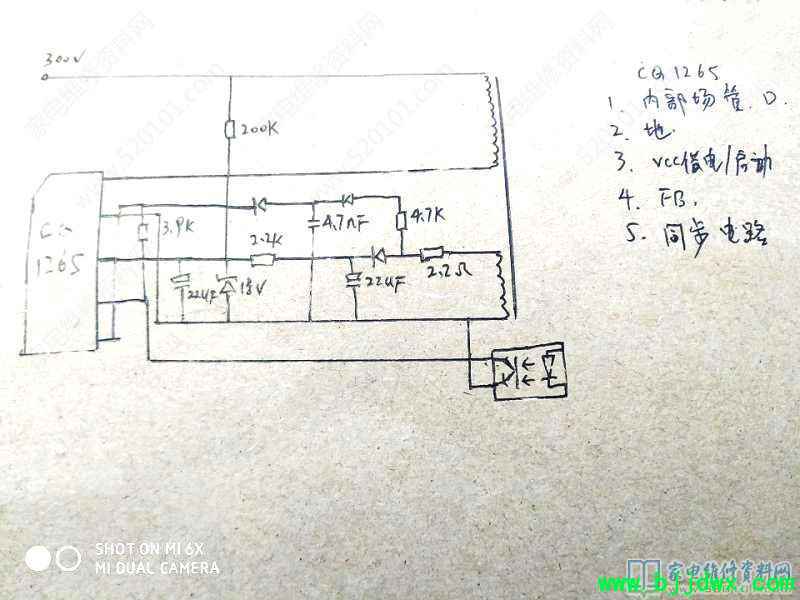 300V
200K
CQ
1265
3.9K
4.7nF
4.7K
2.2K
2.2Ω
22uF
18V
22uF
CQ1265
1. 内部场管.D.
2. 地.
3. VCC供电/启动
4. FB.
5. 同步电路
SHOT ON MI 6X
MI DUAL CAMERA
家电维修资料网
www.bjjdwx.com
家电维修资料网
www.520101.com